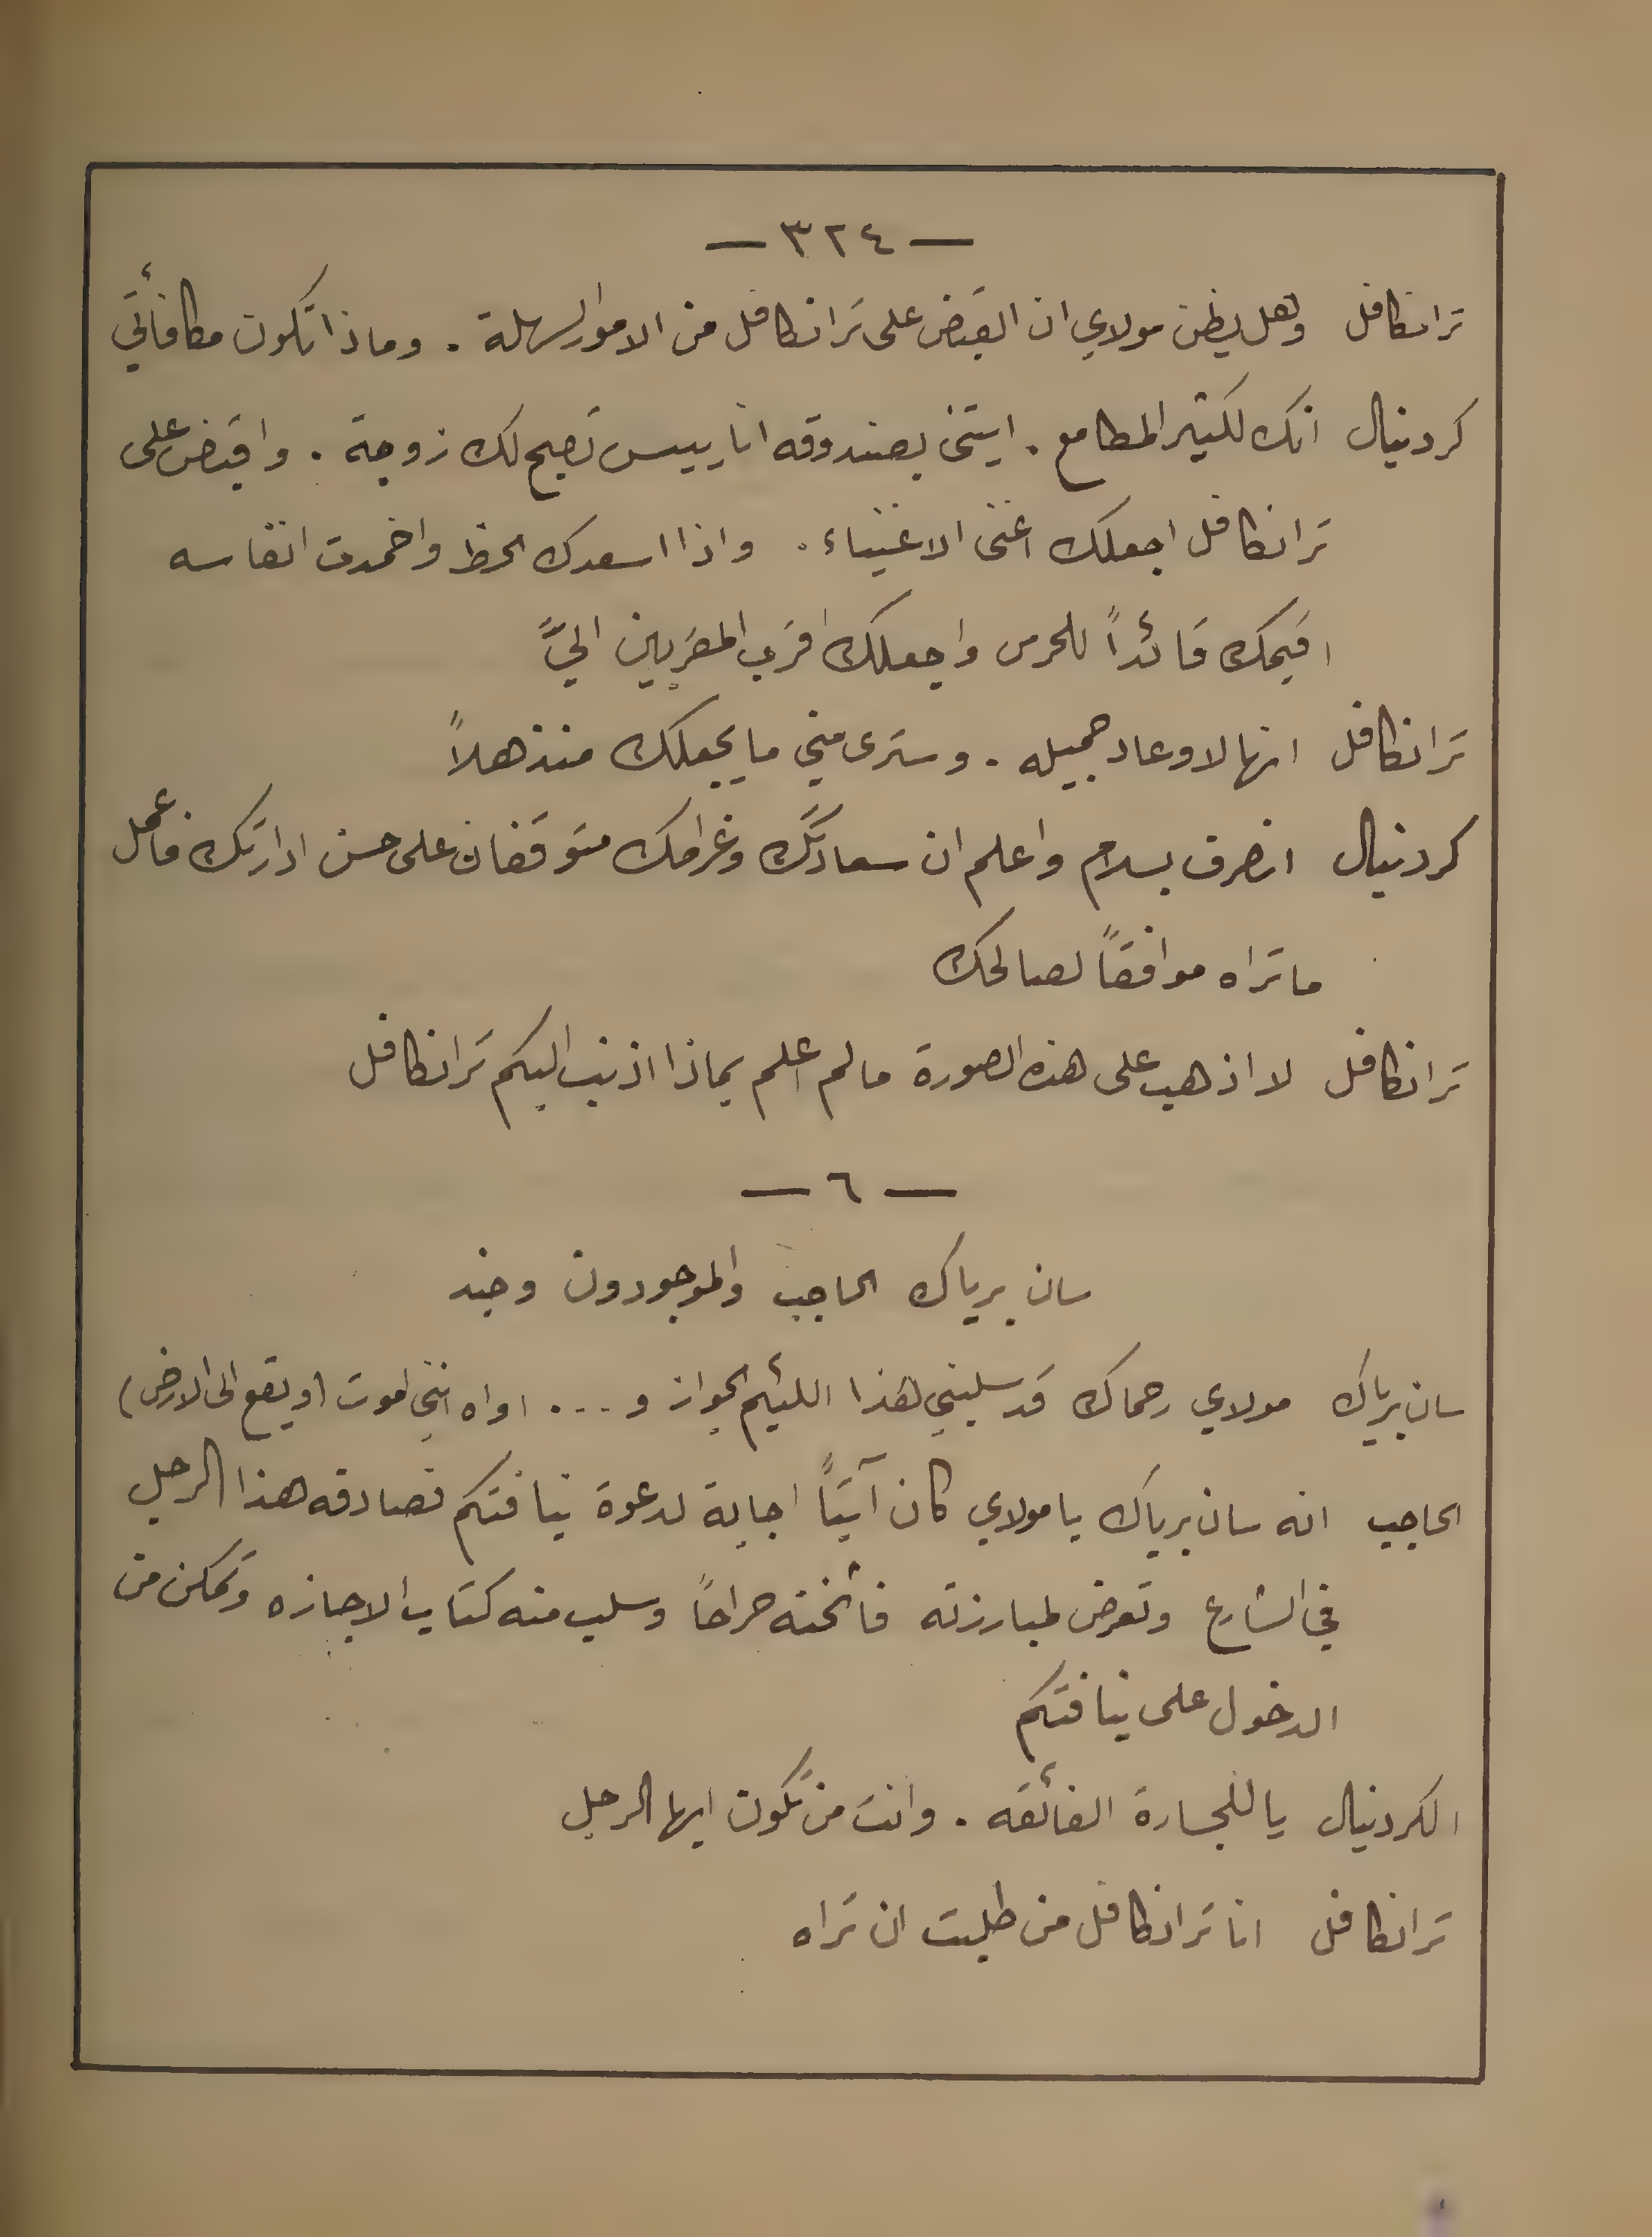 — ٣٢٤ —
ترانكافل وهل يظن مولاي ان القبض على ترانكافل من الامور السهلة . وماذا تكون مكافأتي
كردنيال انك لكثير المطامع . ايتني بصندوقه انا ييس تصبح لك زوجة . واقبض على
ترانكافل اجعلك اغنى الاغنياء . واذا اسعدك الحظ واخمدت انفاسه
اقيمك قائداً للحرس واجعلك اقرب المقربين اليَّ
ترانكافل انها لاوعاد جميله . وسترى مني ما يجعلك منذهلاً
كردنيال انصرف بسلام واعلم ان سعادتك وغرامك متوقفان على حسن ادارتك فاعمل
ما تراه موافقاً لصالحك
ترانكافل لا اذهب على هذه الصورة ما لم اعلم بماذا اذنب اليكم ترانكافل
— ٦ —
سان برياك الحاجب والموجودون وجند
سان برياك مولاي رحماك قد سلبني هذا اللئيم الجواز و .... اواه انني اموت (ويقع الى الارض)
الحاجب انه سان برياك يا مولاي كان آتياً اجابة لدعوة نيافتكم فصادفه هذا الرجل
في الشارع وتعرض لمبارزته فأثخنه جراحاً وسلب منه كتاب الاجازه وتمكن من
الدخول على نيافتكم
الكردنيال يا للجسارة الفائقه . وانت من تكون ايها الرجل
ترانكافل انا ترانكافل من طلبت ان تراه